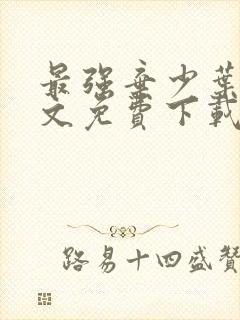 最强弃少叶
文免费下载
路易十四盛赞